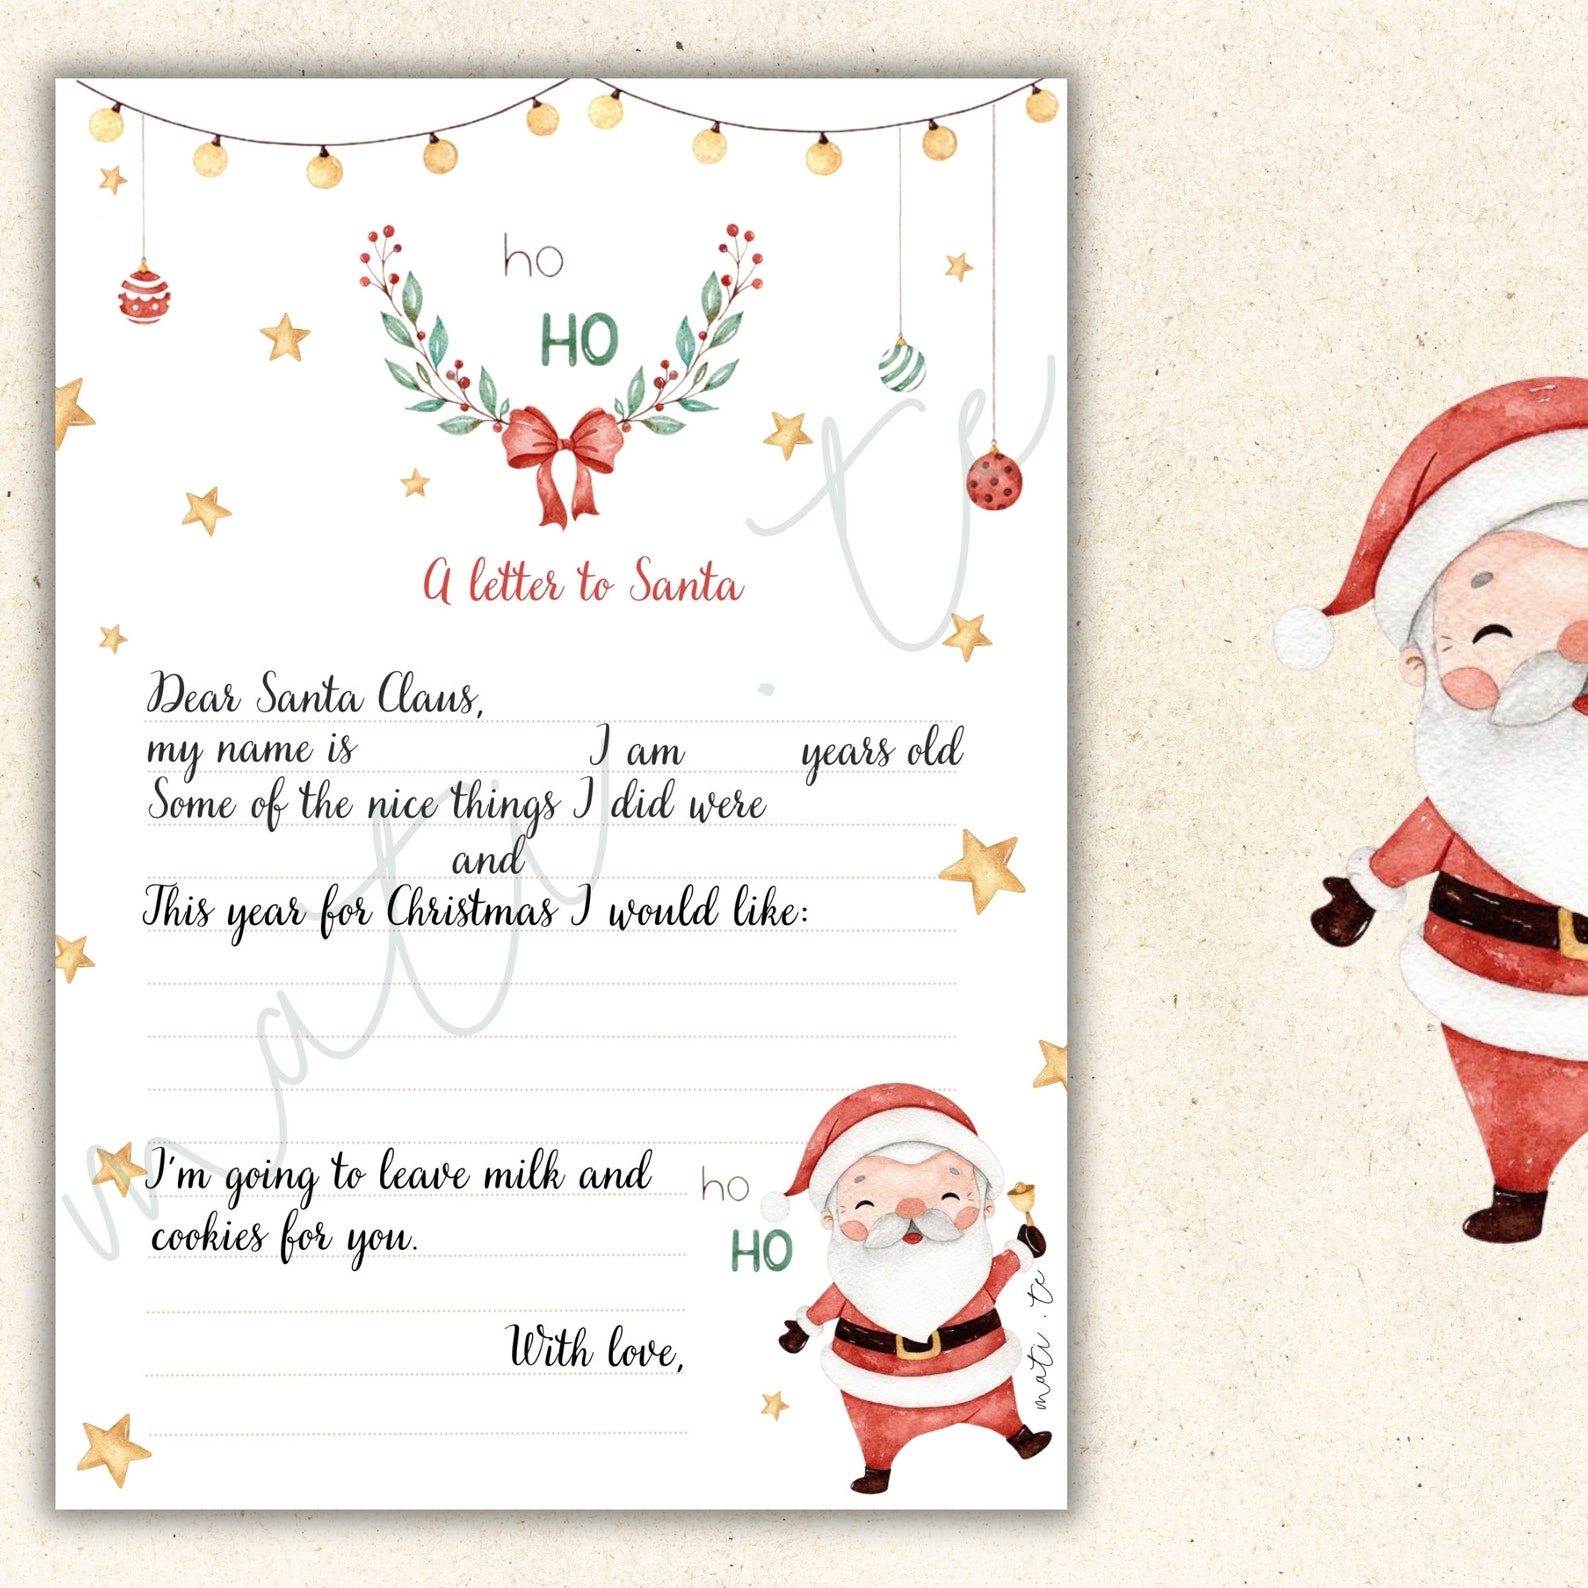 ho
HO
A letter to Santa
Dear Santa Claus,
my name is I am years old
Some of the nice things I did were
and
This year for Christmas I would like:
I'm going to leave milk and
cookies for you.
ho
HO
With love,
mati.te
mati.te